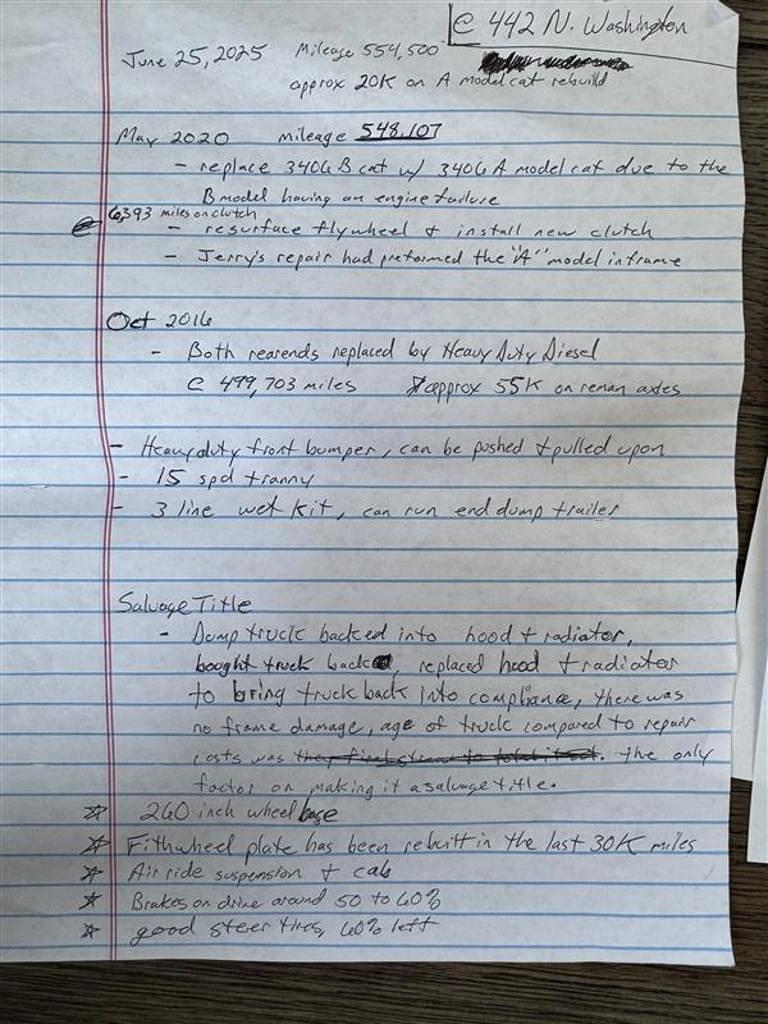 @ 442 N. Washington
June 25, 2025 Mileage 554,500
approx 20K on A model cat rebuild
May 2020 mileage 548,107
- replace 3406B cat w/ 3406A model cat due to the
B model having an engine failure
6,393 miles on clutch
- resurface flywheel & install new clutch
- Jerry's repair had preformed the "A" model inframe
Oct 2016
- Both rearends replaced by Heavy Duty Diesel
@ 499,703 miles approx 55K on reman axles
- Heavy duty front bumper, can be pushed & pulled upon
- 15 spd tranny
- 3 line wet kit, can run end dump trailer
Salvage Title
- Dump truck backed into hood & radiator,
bought truck back, replaced hood & radiator
to bring truck back into compliance, there was
no frame damage, age of truck compared to repair
costs was the only
factor on making it a salvage title.
☆ 260 inch wheel base
☆ Fithwheel plate has been rebuilt in the last 30K miles
☆ Air ride suspension & cab
☆ Brakes on drive around 50 to 60%
☆ good steer tires, 60% left